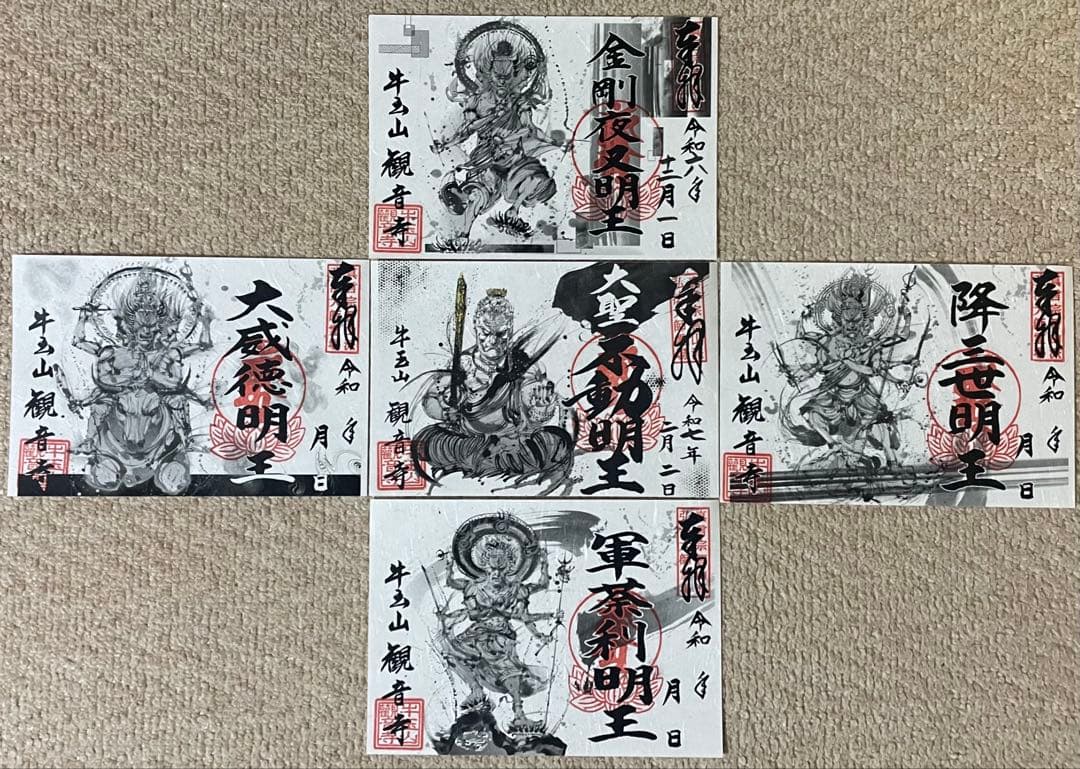 奉拝
令和六年
十二月一日
金剛夜叉明王
牛玉山
観音寺
奉拝
令和 年
月 日
大威徳明王
牛玉山
観音寺
奉拝
令和七年
二月二日
大聖不動明王
牛玉山
観音寺
奉拝
令和 年
月 日
降三世明王
牛玉山
観音寺
奉拝
令和 年
月 日
軍荼利明王
牛玉山
観音寺